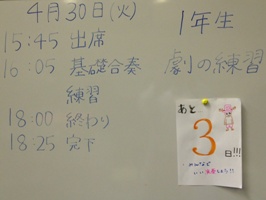 4月30日(火)
15:45 出席
16:05 基礎合奏
練習
18:00 終わり
18:25 完下
1年生
劇の練習
あと
3
日!!!